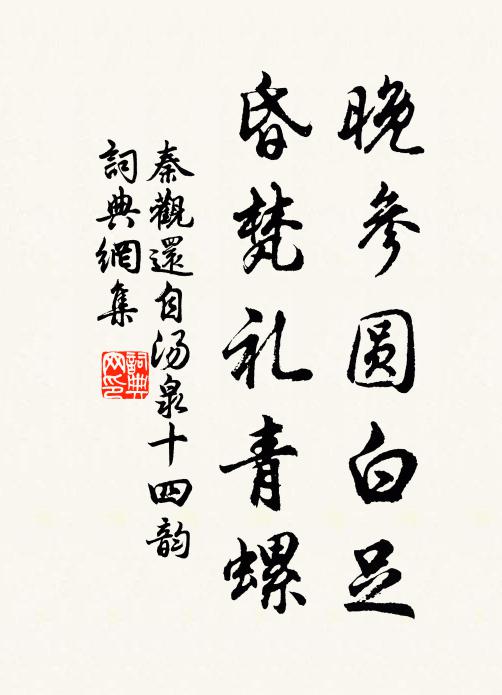 晚参圆白足
昏梵礼青螺
秦觀還自汤泉十四韵
詞典網集
詞典网印